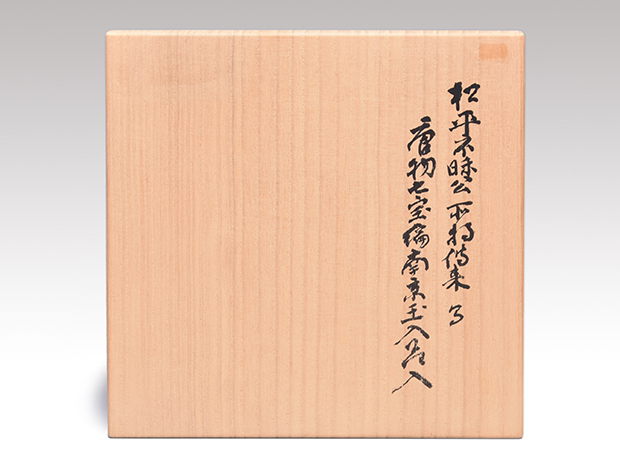 松平不昧公所持傳来 写
唐物七宝編南京玉入花入